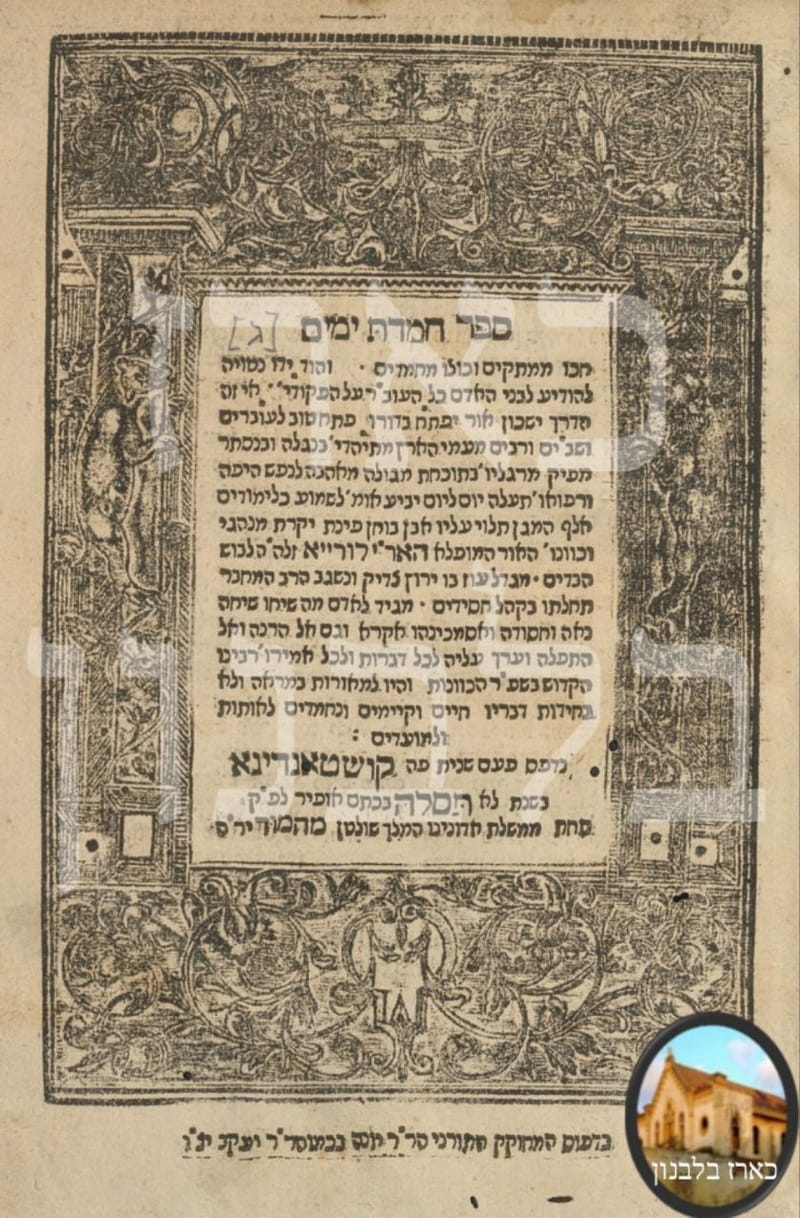 ספר חמדת ימים [ג]
חכו ממתקים וכולו מחמדים • והוד ילו נטויה
להודיע לבני האדם כל העובר על הפקודי' אי זה
הדרך ישכון אור יפתח בדורו פתח טוב לעוברים
ושבים ורבים מעמי הארץ מתיהדי' בנגלה ובנסתר
מפיק מרגליו' בתוכחת מגולה מאהבה לנפש היפה
ורפואו' תעלה יום ליום יביע אומ' לשמוע כלימודים
אלף המגן תלוי עליו אבן בוחן פינת יקרת מנהגי
וכוונו' האור המופלא האר"י לורייא זלה"ה לבוש
הבדים • מגדל עוז בו ירוץ צדיק ונשגב הרב המחבר
תחלתו בקהל חסידים • מגיד לאדם מה שיחו שיחה
נאה וחסודה ואסמכינהו אקרא וגם אל הרנה ואל
התפלה וערך עליה לכל דברות ולכל אמירו' רבינו
הקדוש בשער הכוונות והיו למאורות במראה ולא
בחידות דבריו חיים וקיימים ונחמדים לאותות
ולמועדים :
נדפס פעם שנית פה קושטאנדינא
בשנת לא תסלה בכתם אופיר לפ"ק
תחת ממשלת אדונינו המלך שולטן מהמוד יר"ה
בדפוס המחוקק התורני הר"ר יונה בכמוהר"ר יעקב יצ"ו
כארז
בלבנון
כארז בלבנון